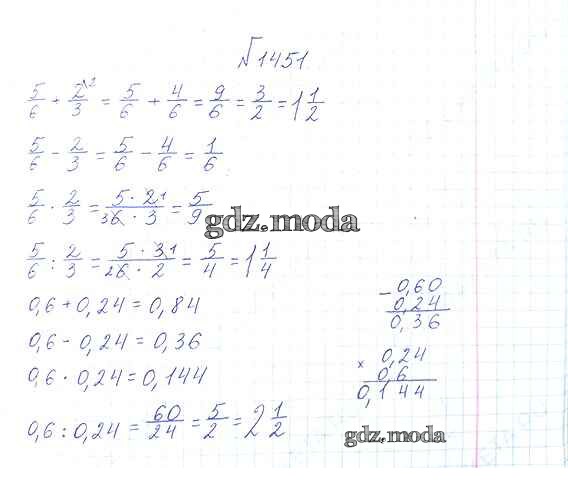 №1451
5/6 + 2/3 ^2 = 5/6 + 4/6 = 9/6 = 3/2 = 1 1/2
5/6 - 2/3 = 5/6 - 4/6 = 1/6
5/6 · 2/3 = 5 · 2 1 / 3 6 · 3 = 5/9
gdz.moda
5/6 : 2/3 = 5 · 3 1 / 2 6 · 2 = 5/4 = 1 1/4
0,6 + 0,24 = 0,84
0,6 - 0,24 = 0,36
0,6 · 0,24 = 0,144
0,6 : 0,24 = 60/24 = 5/2 = 2 1/2
- 0,60
0,24
0,36
× 0,24
0,6
0,144
gdz.moda